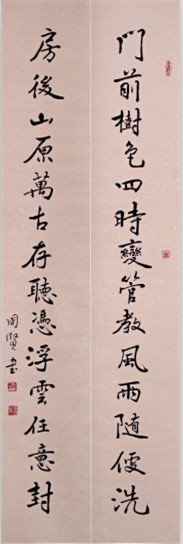 門前樹色四時變管教風雨随便洗
房後山原萬古存聽憑浮雲任意封
國賢書